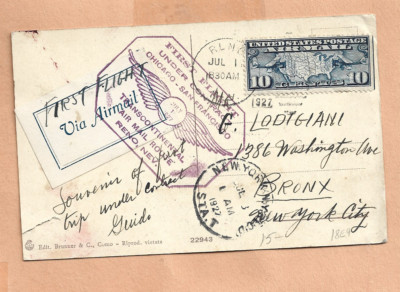 FIRST FLIGHT
Via Airmail
FIRST FLIGHT
UNDER
CHICAGO - SAN FRANCISCO
TRANSCONTINENTAL
AIR MAIL ROUTE
RENO, NEV.
RENO
JUL 1
830AM
1927
UNITED STATES POSTAGE
AIR MAIL
10 10
G. LODIGIANI
1386 Washington Ave
BRONX
New York City
Souvenir of first
trip under contract
Guido
NEW YORK, N.Y.
JUL 3
AM
1927
STA.
15-
Edit. Brunner & C., Como - Riprod. vietata
22943